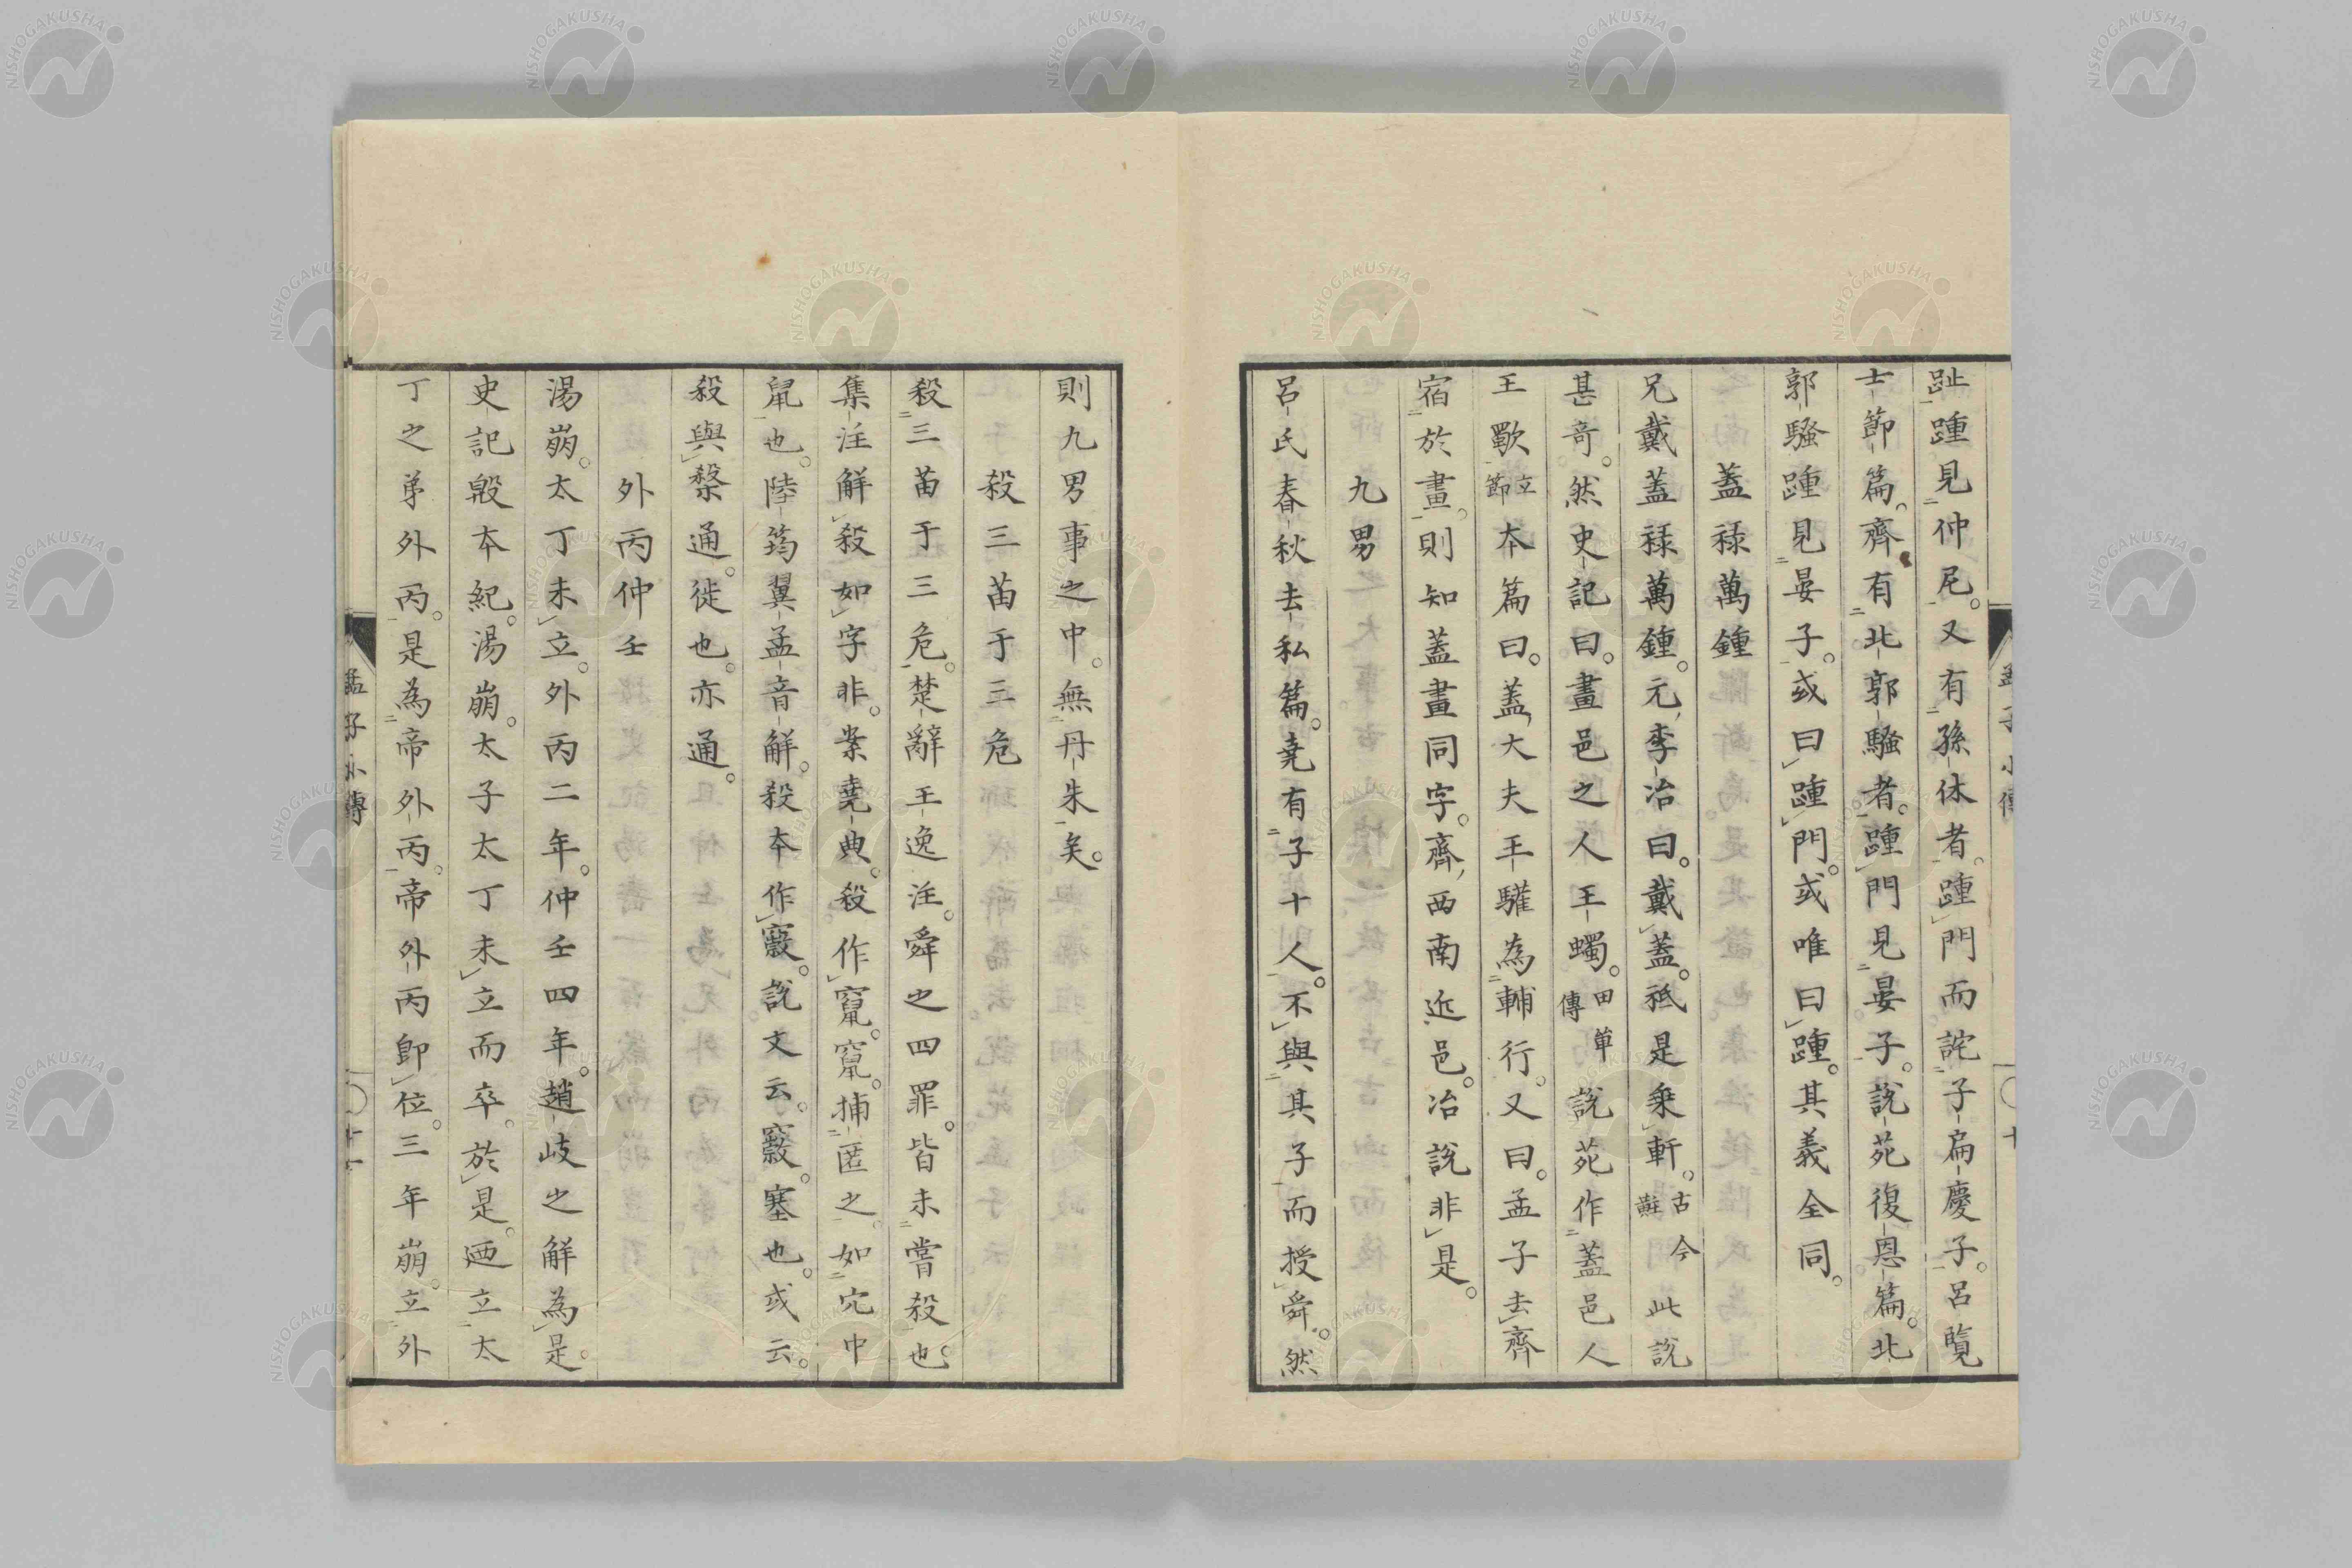 趾踵見仲尼。又有孫休者。踵門而詫子扁慶子。呂覧
士節篇。齊有北郭騷者。踵門見晏子。說苑復恩篇。北
郭騷踵見晏子。或曰踵門。或唯曰踵。其義全同。
蓋祿萬鍾
兄戴蓋祿萬鍾。元李冶曰。戴蓋。祗是乗軒。古今黈此說
甚奇。然史記曰。畫邑之人王蠋。田單傳說苑作蓋邑人
王歜立節本篇曰。蓋大夫王驩為輔行。又曰。孟子去齊
宿於畫。則知蓋畫同字。齊西南近邑。冶說非是。
九男
呂氏春秋去私篇。堯有子十人。不與其子而授舜。然
孟子小傳 十
則九男事之中。無丹朱矣。
殺三苗于三危
殺三苗于三危。楚辭王逸注。舜之四罪。皆未嘗殺也。
集注解殺如字非。案堯典。殺作竄。竄。捕匿之。如穴中
鼠也。陸筠翼孟音解。殺本作𥨫。說文云。𥨫。塞也。或云。
殺與㮮通。徙也。亦通。
外丙仲壬
湯崩。太丁未立。外丙二年。仲壬四年。趙岐之解為是。
史記殷本紀。湯崩。太子太丁未立而卒。於是。迺立太
丁之弟外丙。是為帝外丙。帝外丙即位。三年崩。立外
孟子小傳 十一
NISHOGAKUSHA